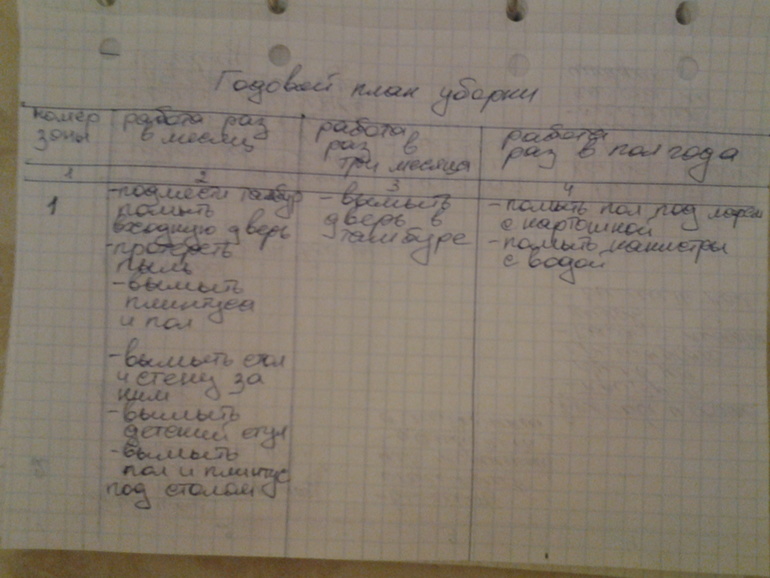 Годовой план уборки
номер зоны
работа раз в месяц
работа раз в три месяца
работа раз в пол года
1
2
3
4
1
-подмести тамбур
помыть
входную дверь
-протереть
пыль
-вымыть
плинтуса
и пол
-вымыть стол
и стену за
ним
-вымыть
детский стул
-вымыть
пол и плинтус
под столом
-вымыть
дверь в
тамбуре
-помыть пол под ларем
с картошкой
-помыть канистры
с водой